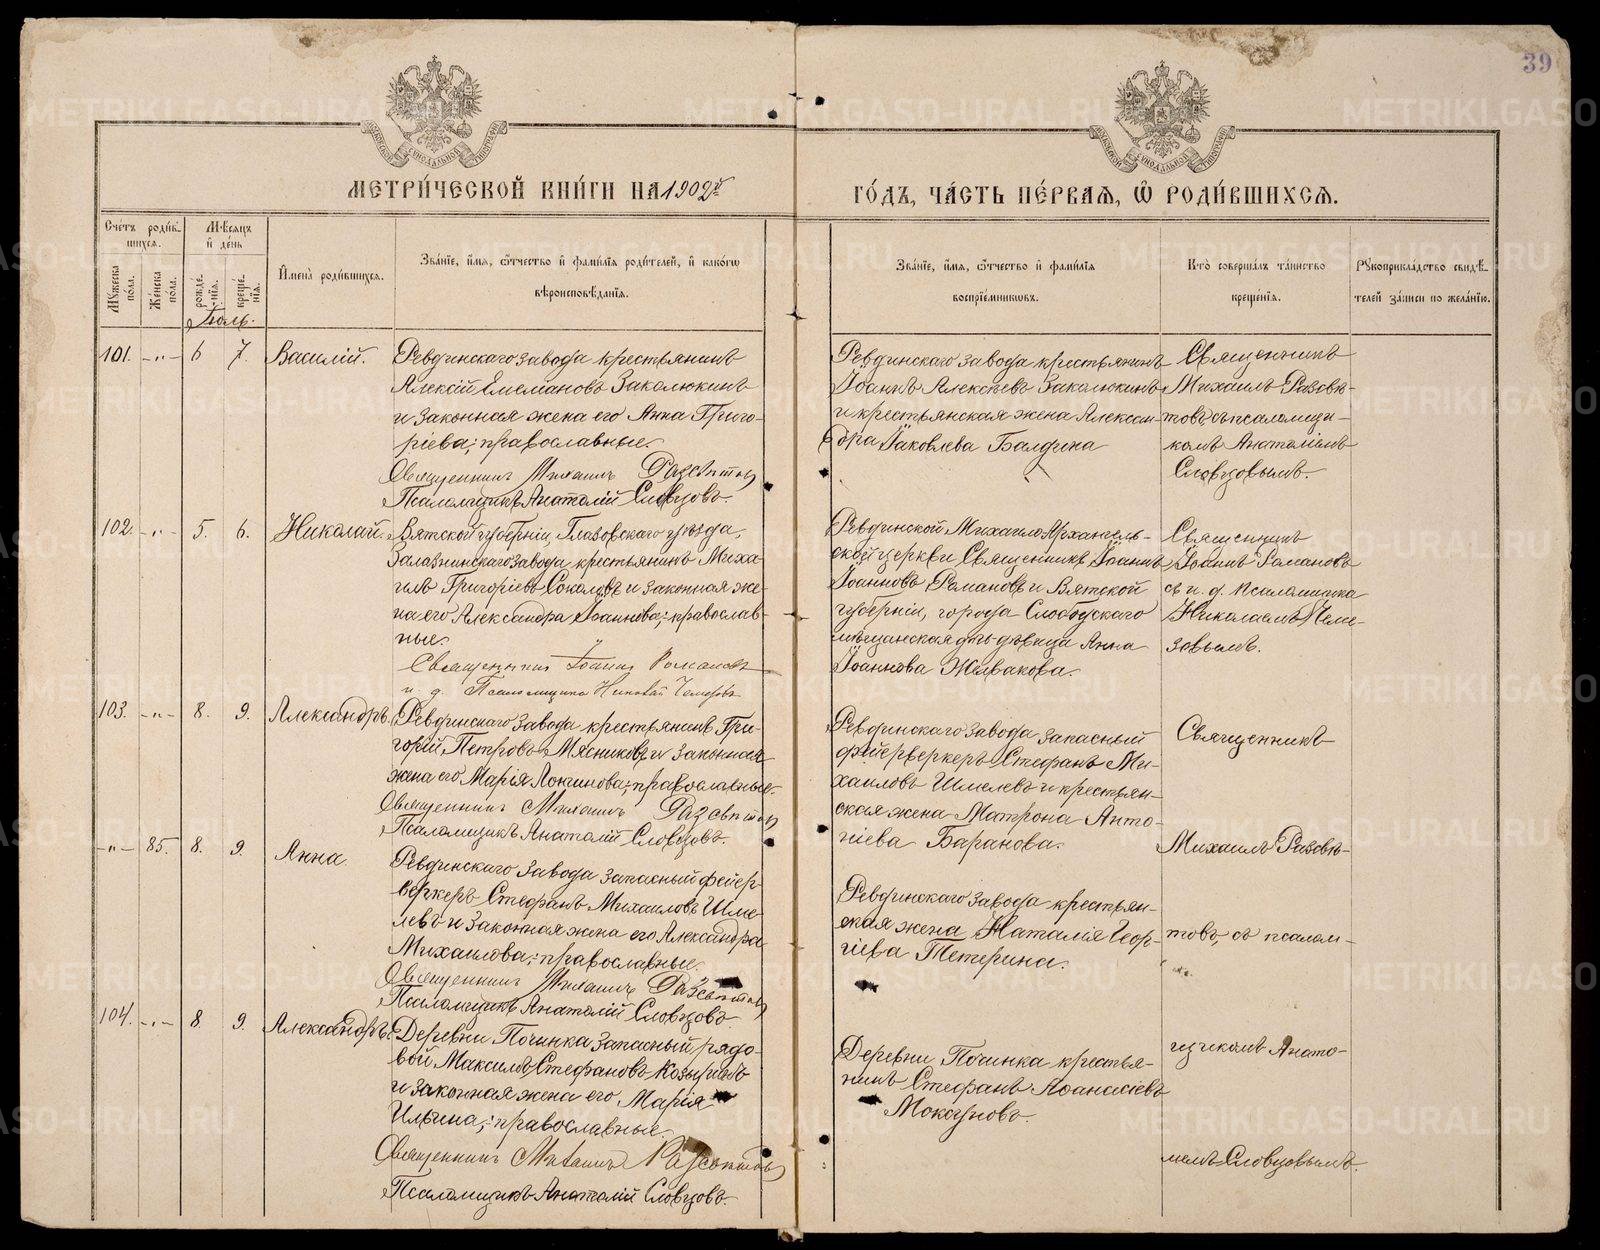 39
МЕТРИ́ЧЕСКОЙ КНИ́ГИ НА 1902й
ГО́ДЪ, ЧА́СТЬ ПЕ́РВАѦ, Ѡ҆ РОДИ́ВШИХСѦ.
Счетъ роди́в-
шихсѧ.
Мѣсѧцъ
и҆ де́нь
Мꙋжеска
по́ла.
Же́нска
по́ла.
рожде́-
нїѧ.
креще́-
нїѧ.
И҆мена̀ роди́вшихсѧ.
Зва́нїе, и҆́мѧ, ѻ҆́тчество и҆ фами́лїѧ роди́телей, и҆ како́гѡ
вѣроисповѣ́данїѧ.
Зва́нїе, и҆́мѧ, ѻ҆́тчество и҆ фами́лїѧ
воспрїе́мникѡвъ.
Кто̀ соверша́лъ та́инство
креще́нїѧ.
Рꙋкоприкла́дство свидѣ́-
телей за́писи по жела́нїю.
Іюль.
101. -„- 6 7. Василій.
Ревдинскаго завода крестьянинъ
Алексій Емеліановъ Заколюкинъ
и законная жена его Анна Григо-
ріева; православные.
Священникъ Михаилъ Разсвѣтовъ
Псаломщикъ Анатолій Словцовъ.
Ревдинскаго завода крестьянинъ
Іоаннъ Алексѣевъ Заколюкинъ
и крестьянская жена Алексан-
дра Іаковлева Балдина
Священникъ
Михаилъ Разсвѣ-
товъ съ псаломщи-
комъ Анатоліемъ
Словцовымъ.
102. -„- 5. 6. Николай.
Вятской губерніи, Глазовскаго уѣзда,
Залазнинскаго завода крестьянинъ Миха-
илъ Григоріевъ Соколовъ и законная же-
на его Александра Іоаннова; православ-
ные.
Священникъ Іоаннъ Романовъ
и. д. Псаломщика Николай
Ревдинской Михаило-Архангель-
ской церкви Священникъ Іоаннъ
Іоанновъ Романовъ и Вятской
губерніи, города Слободскаго
мѣщанская дѣвица Анна
Іоаннова
Священникъ
Іоаннъ Романовъ
съ и. д. псаломщика
Николаемъ
103. -„- 8. 9. Александръ.
Ревдинскаго завода крестьянинъ Гри-
горій Петровъ Мясниковъ и законная
жена его Марія Лонгинова; православные.
Священникъ Михаилъ Разсвѣтовъ
Псаломщикъ Анатолій Словцовъ.
Ревдинскаго завода запасный
фейерверкеръ Стефанъ Ми-
хаиловъ Шмелевъ и крестьян-
ская жена Матрона Анто-
ніева Баранова.
Священникъ
-„- 85. 8. 9. Анна.
Ревдинскаго завода запасный фейер-
веркеръ Стефанъ Михаиловъ Шме-
левъ и законная жена его Александра
Михаилова; православные.
Священникъ Михаилъ Разсвѣтовъ
Псаломщикъ Анатолій Словцовъ.
Ревдинскаго завода крестьян-
ская жена Наталія Геор-
гіева Тетерина.
Михаилъ Разсвѣ-
товъ, съ псалом-
104. -„- 8. 9. Александръ.
Деревни Починка запасный рядо-
вой Максимъ Стефановъ Козыринъ
и законная жена его Марія
Ильина; православные.
Священникъ Михаилъ Разсвѣтовъ
Псаломщикъ Анатолій Словцовъ.
Деревни Починка крестья-
нинъ Стефанъ Аѳанасіевъ
Мокроусовъ.
щикомъ Анато-
ліемъ Словцовымъ.
METRIKI.GASO-URAL.RU